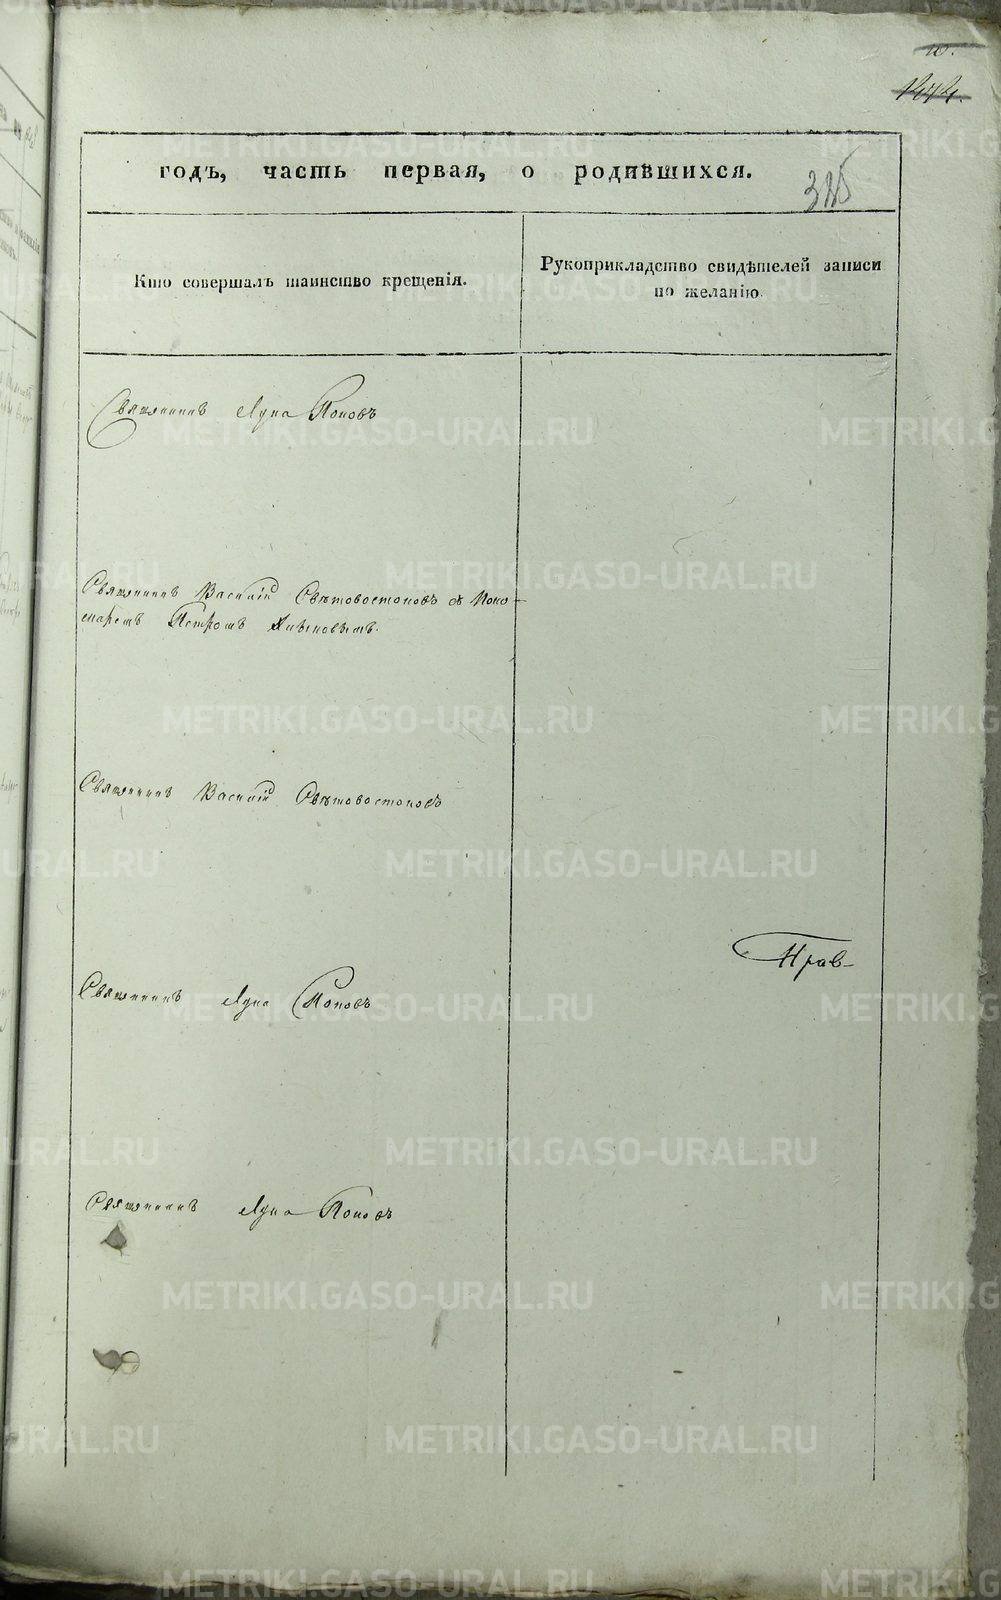 10.
годъ, часть первая, о родившихся.
325
Кто совершалъ таинство крещенія.
Рукоприкладство свидѣтелей записи
по желанію.
Священникъ Лука Поповъ
Священникъ Василій Свѣтовостоковъ съ Поно-
маремъ Петромъ
Священникъ Василій Свѣтовостоковъ
Прав-
Священникъ Лука Поповъ
Священникъ Лука Поповъ
METRIKI.GASO-URAL.RU